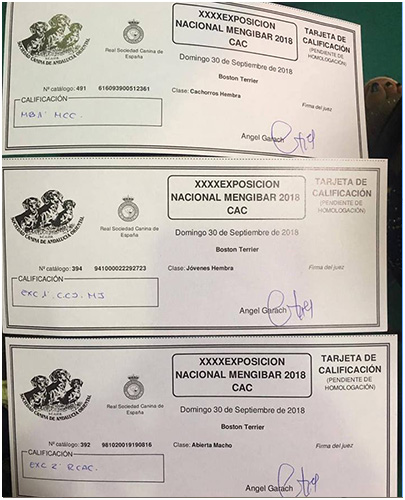 XXXXEXPOSICION
NACIONAL MENGIBAR 2018
CAC
TARJETA DE
CALIFICACIÓN
(PENDIENTE DE
HOMOLOGACIÓN)
SOCIEDAD CANINA DE ANDALUCIA ORIENTAL
Real Sociedad Canina de
España
Domingo 30 de Septiembre de 2018
Boston Terrier
Nº catálogo: 491 616093900512361
Clase: Cachorros Hembra
Firma del juez
CALIFICACIÓN
MB 1ª MCC.
Angel Garach
XXXXEXPOSICION
NACIONAL MENGIBAR 2018
CAC
TARJETA DE
CALIFICACIÓN
(PENDIENTE DE
HOMOLOGACIÓN)
SOCIEDAD CANINA DE ANDALUCIA ORIENTAL
Real Sociedad Canina de
España
Domingo 30 de Septiembre de 2018
Boston Terrier
Nº catálogo: 394 941000022292723
Clase: Jóvenes Hembra
Firma del juez
CALIFICACIÓN
EXC 1ª CCJ MJ
Angel Garach
XXXXEXPOSICION
NACIONAL MENGIBAR 2018
CAC
TARJETA DE
CALIFICACIÓN
(PENDIENTE DE
HOMOLOGACIÓN)
SOCIEDAD CANINA DE ANDALUCIA ORIENTAL
Real Sociedad Canina de
España
Domingo 30 de Septiembre de 2018
Boston Terrier
Nº catálogo: 392 961020019190816
Clase: Abierta Macho
Firma del juez
CALIFICACIÓN
EXC 2º RCAC
Angel Garach